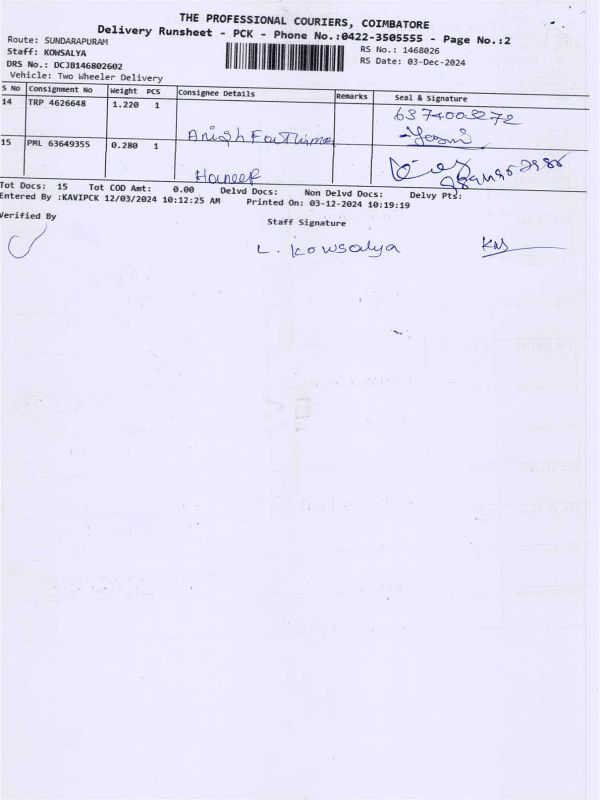 THE PROFESSIONAL COURIERS, COIMBATORE
Delivery Runsheet - PCK - Phone No.:0422-3505555 - Page No.:2
Route: SUNDARAPURAM
Staff: KOWSALYA
DRS No.: DCJB146802602
Vehicle: Two Wheeler Delivery
RS No.: 1468026
RS Date: 03-Dec-2024
S No Consignment No Weight PCS Consignee Details Remarks Seal & Signature
14 TRP 4626648 1.220 1 Anish Fathima 6374003272
15 PML 63649355 0.280 1 Haneef
Tot Docs: 15 Tot COD Amt: 0.00 Delvd Docs: Non Delvd Docs: Delvy Pts:
Entered By :KAVIPCK 12/03/2024 10:12:25 AM Printed On: 03-12-2024 10:19:19
Verified By Staff Signature
L. Kowsalya